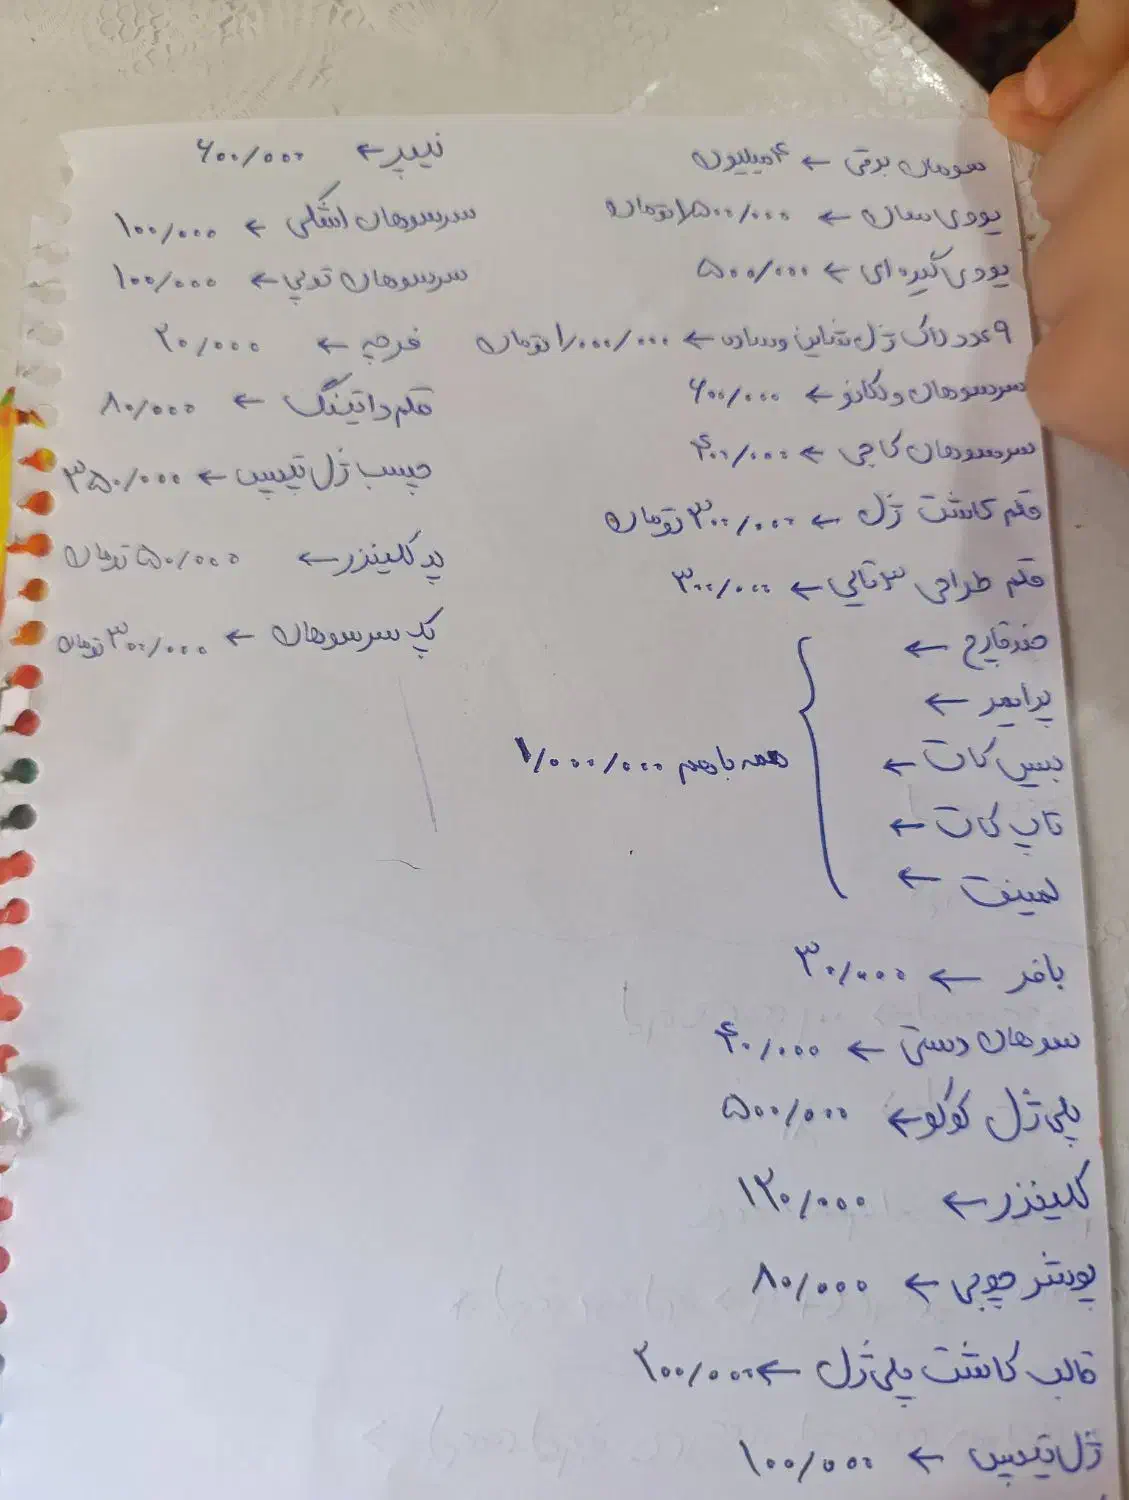 سوهان برقی ← ۴میلیون
یووی سان ← ۱/۵۰۰/۰۰۰تومان
یووی گیره ای ← ۵۰۰/۰۰۰
۹عدد لاک ژل شاین وساده ← ۱/۰۰۰/۰۰۰تومان
سرسوهان ولکانو ← ۶۰۰/۰۰۰
سرسوهان کاجی ← ۴۰۰/۰۰۰
قلم کاشت ژل ← ۳۰۰/۰۰۰تومان
قلم طراحی ۳تایی ← ۳۰۰/۰۰۰
ضدقارچ ←
پرایمر ←
بیس کات ←
تاپ کات ←
لمینت ←
همه باهم ۱/۰۰۰/۰۰۰
بافر ← ۳۰/۰۰۰
سوهان دستی ← ۴۰/۰۰۰
پلی ژل کوکو ← ۵۰۰/۰۰۰
کلینزر ← ۱۲۰/۰۰۰
پوشر چوبی ← ۸۰/۰۰۰
قالب کاشت پلی ژل ← ۲۰۰/۰۰۰
ژل تیپس ← ۱۰۰/۰۰۰
نیپر ← ۶۰۰/۰۰۰
سرسوهان اشکی ← ۱۰۰/۰۰۰
سرسوهان توپی ← ۱۰۰/۰۰۰
فرچه ← ۲۰/۰۰۰
قلم داتینگ ← ۸۰/۰۰۰
چسب ژل تیپس ← ۳۵۰/۰۰۰
پد کلینزر ← ۵۰/۰۰۰ تومان
پک سرسوهان ← ۳۰۰/۰۰۰تومان